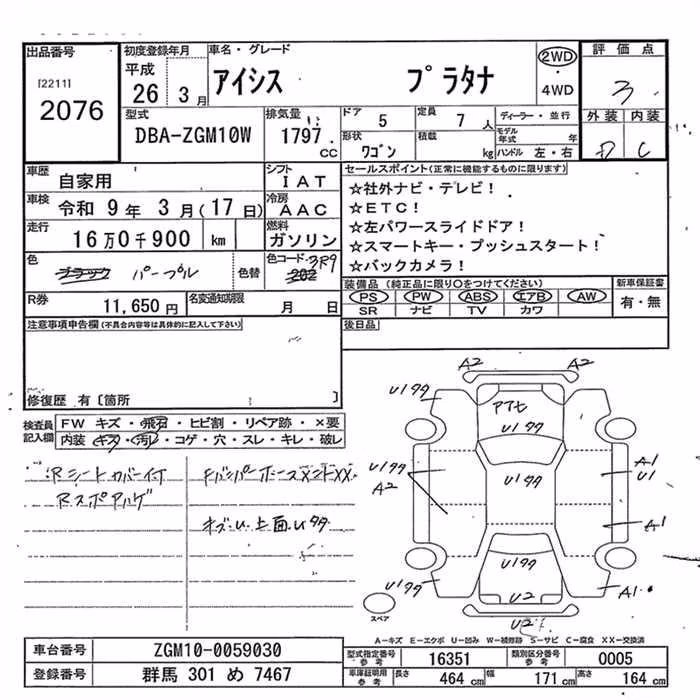 出品番号
[2211]
2076
初度登録年月
平成
26 3月
車名・グレード
アイシス プラタナ
2WD
・
4WD
評価点
3
外装 内装
D C
型式
DBA-ZGM10W
排気量
1797
cc
ドア
5
定員
7人
形状
ワゴン
積載
kg
ディーラー・並行
モデル年式 年
ハンドル 左・右
車歴
自家用
シフト
IAT
車検
令和 9年 3月(17日)
冷房
AAC
走行
16万0千900 km
燃料
ガソリン
色
ブラック パープル
色替
色コード
3R9
202
R券
11,650円
名変通知期限
月 日
セールスポイント(正常に機能するものに限ります)
☆社外ナビ・テレビ!
☆ETC!
☆左パワースライドドア!
☆スマートキー・プッシュスタート!
☆バックカメラ!
装備品(純正品に限り○をつけてください)
PS PW ABS エアB AW
SR ナビ TV カワ
新車保証書
有・無
後日品
注意事項申告欄(不具合内容等は具体的に記入して下さい)
修復歴 有〔箇所 〕
検査員
記入欄
FW キズ・飛石・ヒビ割・リペア跡・×要
内装 キズ・汚レ・コゲ・穴・スレ・キレ・破レ
Rシートカバー付
FバンパーホースメンドXX
Rスポアルゲ
オズレ 上面U钅
A2 A2
U1
A1
U1
A2
A1
A1
U2
U2
スペア
A-キズ E-エクボ U-凹み W-補修跡 S-サビ C-腐食 XX-交換済
車台番号
ZGM10-0059030
登録番号
群馬 301 め 7467
型式指定番号
参考
16351
類別区分番号
参考
0005
車庫証明用
参考
長さ
464 cm
幅
171 cm
高さ
164 cm